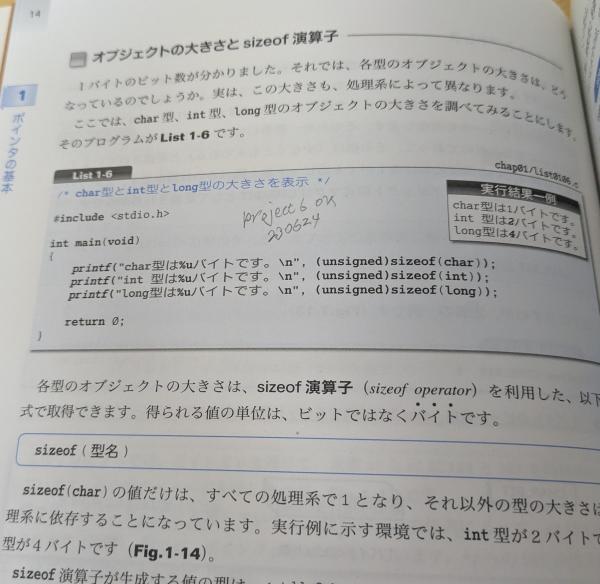 14
オブジェクトの大きさと sizeof 演算子
1バイトのビット数が分かりました。それでは、各型のオブジェクトの大きさは、どう
なっているのでしょうか。実は、この大きさも、処理系によって異なります。
ここでは、char 型、int 型、long 型のオブジェクトの大きさを調べてみることにします。
そのプログラムが List 1-6 です。
1
ポインタの基本
List 1-6
chap01/list0106.c
/* char型とint型とlong型の大きさを表示 */
#include <stdio.h>
project 6 ok
230624
実行結果一例
char型は1バイトです。
int 型は2バイトです。
long型は4バイトです。
int main(void)
{
printf("char型は%uバイトです。\n", (unsigned)sizeof(char));
printf("int 型は%uバイトです。\n", (unsigned)sizeof(int));
printf("long型は%uバイトです。\n", (unsigned)sizeof(long));
return 0;
}
各型のオブジェクトの大きさは、sizeof 演算子（sizeof operator）を利用した、以下
式で取得できます。得られる値の単位は、ビットではなくバイトです。
sizeof ( 型名 )
sizeof(char) の値だけは、すべての処理系で1となり、それ以外の型の大きさは
理系に依存することになっています。実行例に示す環境では、int 型が 2 バイトで
型が 4 バイトです（Fig.1-14）。
sizeof 演算子が生成する値の型は、